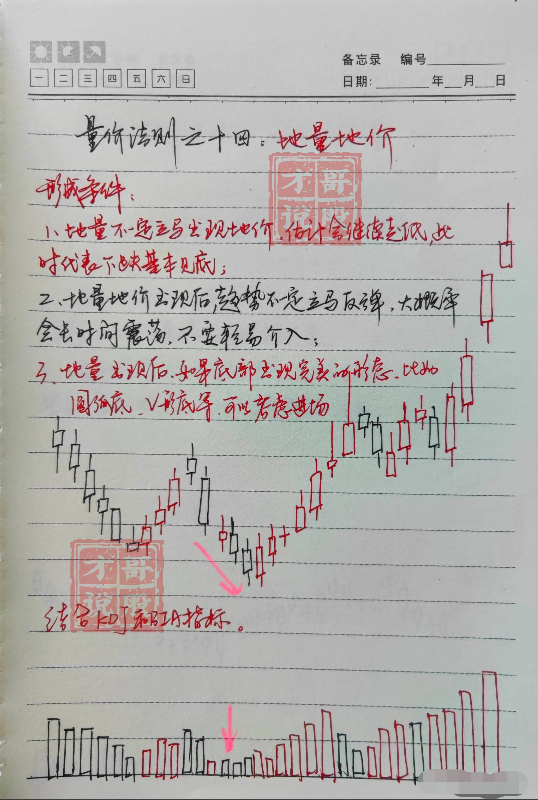 备忘录 编号
一 二 三 四 五 六 日
日期: 年 月 日
量价法则之十四：地量地价
才哥
说股
形成条件：
1、地量不一定立马出现地价，估计会继续走低，此
时代表下跌基本见底；
2、地量地价出现后，趋势不一定立马反弹，大概率
会长时间震荡，不要轻易介入；
3、地量出现后，如果底部出现完美的形态，比如
圆弧底、V形底等，可以考虑进场
才哥
说股
结合KDJ和指标。